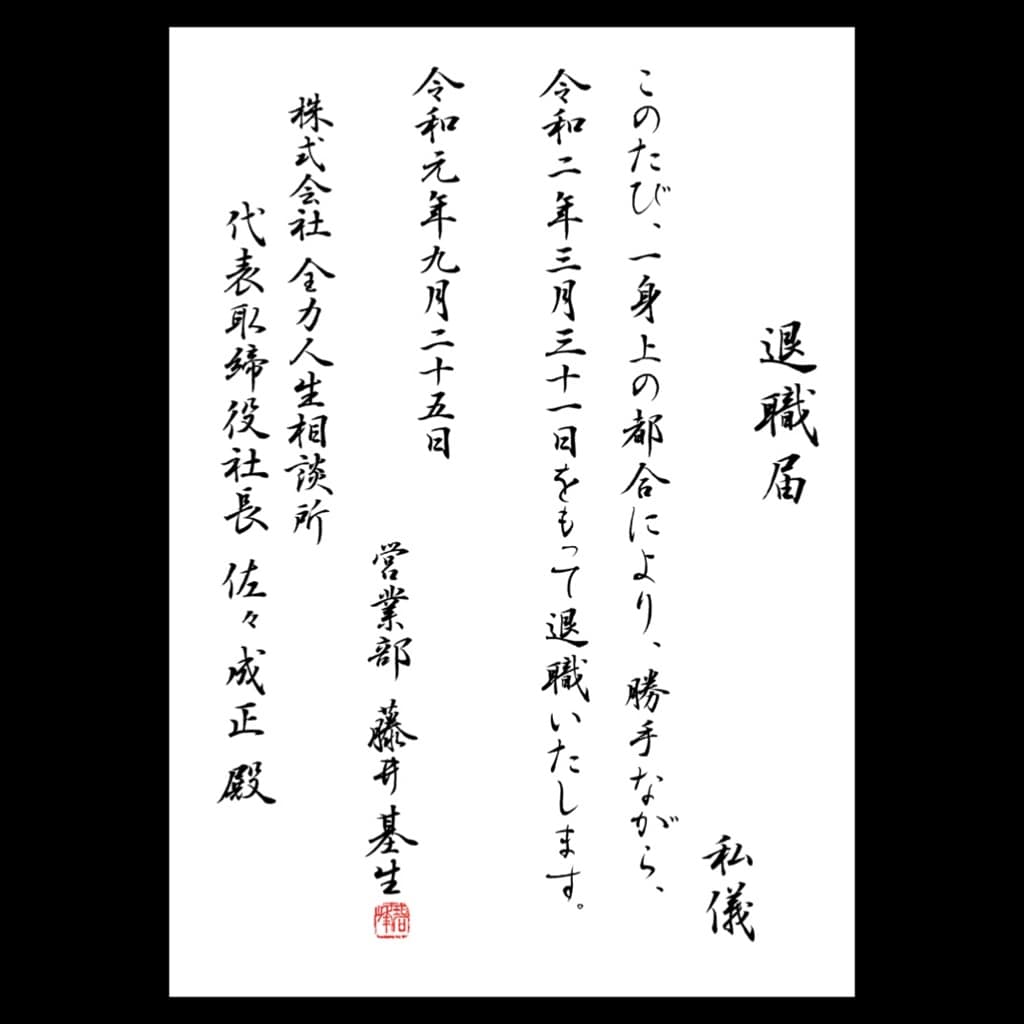 退職届
私儀
このたび、一身上の都合により、勝手ながら、
令和二年三月三十一日をもって退職いたします。
令和元年九月二十五日
営業部 藤井基生
株式会社 全力人生相談所
代表取締役社長 佐々成正 殿